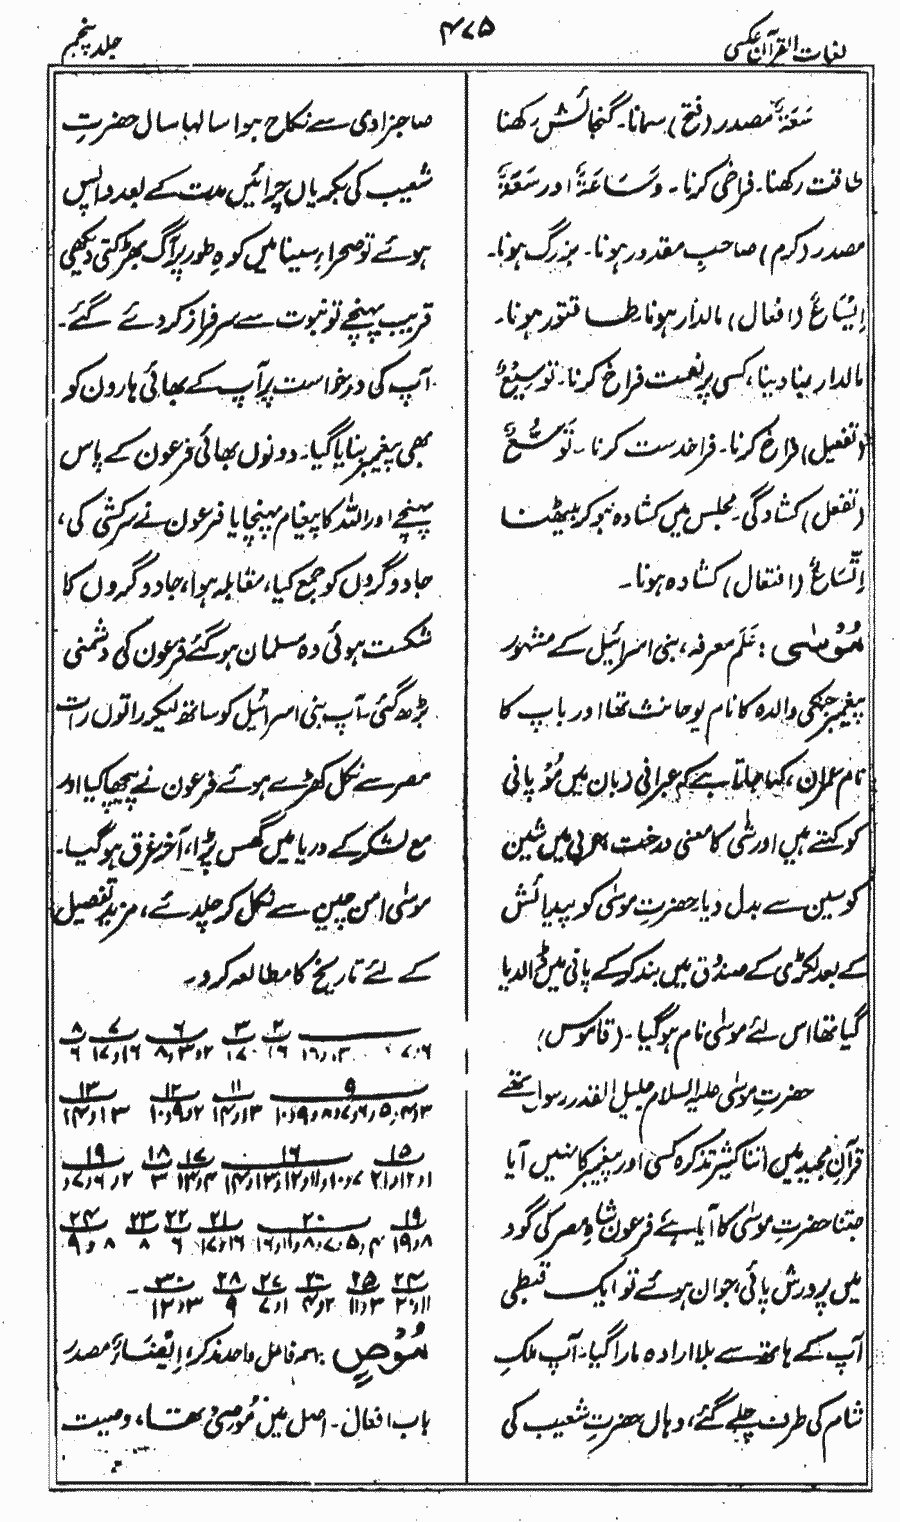 لغات القرآن عکسی
۴۷۵
جلد پنجم
سَعَۃٌ مصدر (فتح) سمانا۔ گنجائش رکھنا
طاقت رکھنا۔ فراخی کرنا۔ وَسَاعَۃٌ اور سَعَۃٌ
مصدر (کرم) صاحبِ مقدور ہونا۔ بزرگ ہونا۔
اِیْسَاعٌ (افعال) مالدار ہونا۔ طاقتور ہونا۔
مالدار بنادینا، کسی پر نعمت فراخ کرنا۔ تَوْسِیْعٌ
(تفعیل) فراخ کرنا۔ فراخدست کرنا۔ تَوَسُّعٌ
(تفعل) کشادگی۔ مجلس میں کشادہ ہوکر بیٹھنا
اِتِّسَاعٌ (افتعال) کشادہ ہونا۔
مُوْسٰی: عَلَم معرفہ، بنی اسرائیل کے مشہور
پیغمبر جنکی والدہ کا نام یوحانث تھا اور باپ کا
نام عمران، کہا جاتا ہے کہ عبرانی زبان میں مُوْ پانی
کو کہتے ہیں اور شٰی کا معنی درخت، عربی میں شین
کو سین سے بدل دیا۔ حضرتِ موسٰی کو پیدائش
کے بعد لکڑی کے صندوق میں بند کرکے پانی میں ڈالدیا
گیا تھا اس لئے موسٰی نام ہوگیا۔ (قاموس)
حضرتِ موسٰی علیہ السلام جلیل القدر رسول تھے
قرآنِ مجید میں اتنا کثیر تذکرہ کسی اور پیغمبر کا نہیں آیا
جتنا حضرتِ موسٰی کا آیا ہے فرعون شاہِ مصر کی گود
میں پرورش پائی، جوان ہوئے تو ایک قبطی
آپ کے ہاتھ سے بلا ارادہ مارا گیا۔ آپ ملکِ
شام کی طرف چلے گئے، وہاں حضرتِ شعیب کی
صاحبزادی سے نکاح ہوا سالہا سال حضرتِ
شعیب کی بکریاں چرائیں مدت کے بعد واپس
ہوئے تو صحراءِ سینا میں کوہِ طور پر آگ بھڑکتی دیکھی
قریب پہنچے تو نبوت سے سرفراز کردئے گئے۔
آپ کی درخواست پر آپ کے بھائی ہارون کو
بھی پیغمبر بنایا گیا۔ دونوں بھائی فرعون کے پاس
پہنچے اور اللہ کا پیغام پہنچایا فرعون نے سرکشی کی،
جادوگروں کو جمع کیا، مقابلہ ہوا، جادوگروں کا
شکست ہوئی وہ مسلمان ہوگئے فرعون کی دشمنی
بڑھ گئی۔ آپ بنی اسرائیل کو ساتھ لیکر راتوں رات
مصر سے نکل کھڑے ہوئے فرعون نے پیچھا کیا اور
مع لشکر کے دریا میں گھس پڑا، آخر غرق ہوگیا۔
موسٰی امن چین سے نکل کر چلدئے، مزید تفصیل
کے لئے تاریخ کا مطالعہ کرو۔
۲ ۳ ۶ ۷ ۸
۱۶ ۱۷ ۲و۳و۸ ۱۶و۱۷ ۶
۹ ۱۱ ۱۲ ۱۳
۳و۴و۵و۶و۷و۸و۹و۱۰ ۱۳و۱۴ ۲و۹و۱۰ ۱۳و۱۴
۱۵ ۱۶ ۱۷ ۱۸ ۱۹
۱و۱۲و۲۱ ۷و۱۰و۱۱و۱۲و۱۳و۱۴ ۴و۱۳ ۳ ۲و۶و۷و
۱۹ ۲۰ ۲۱ ۲۲ ۲۳ ۲۴
۸و۱۹ ۴و۵و۷و۸و۱۱و۱۶ ۱۶و۱۷ ۶ ۸ ۸و۹
۲۴ ۲۵ ۲۶ ۲۷ ۲۸ ۳۰
۱۱و۲۰ ۳و۱۱ ۲و۴ ۱و۷ ۹ ۳و۱۲
مُوْصٍ اسم فاعل واحد مذکر، اِیْصَاءٌ مصدر
باب افعال۔ اصل میں مُوْصِیٌ تھا، وصیت